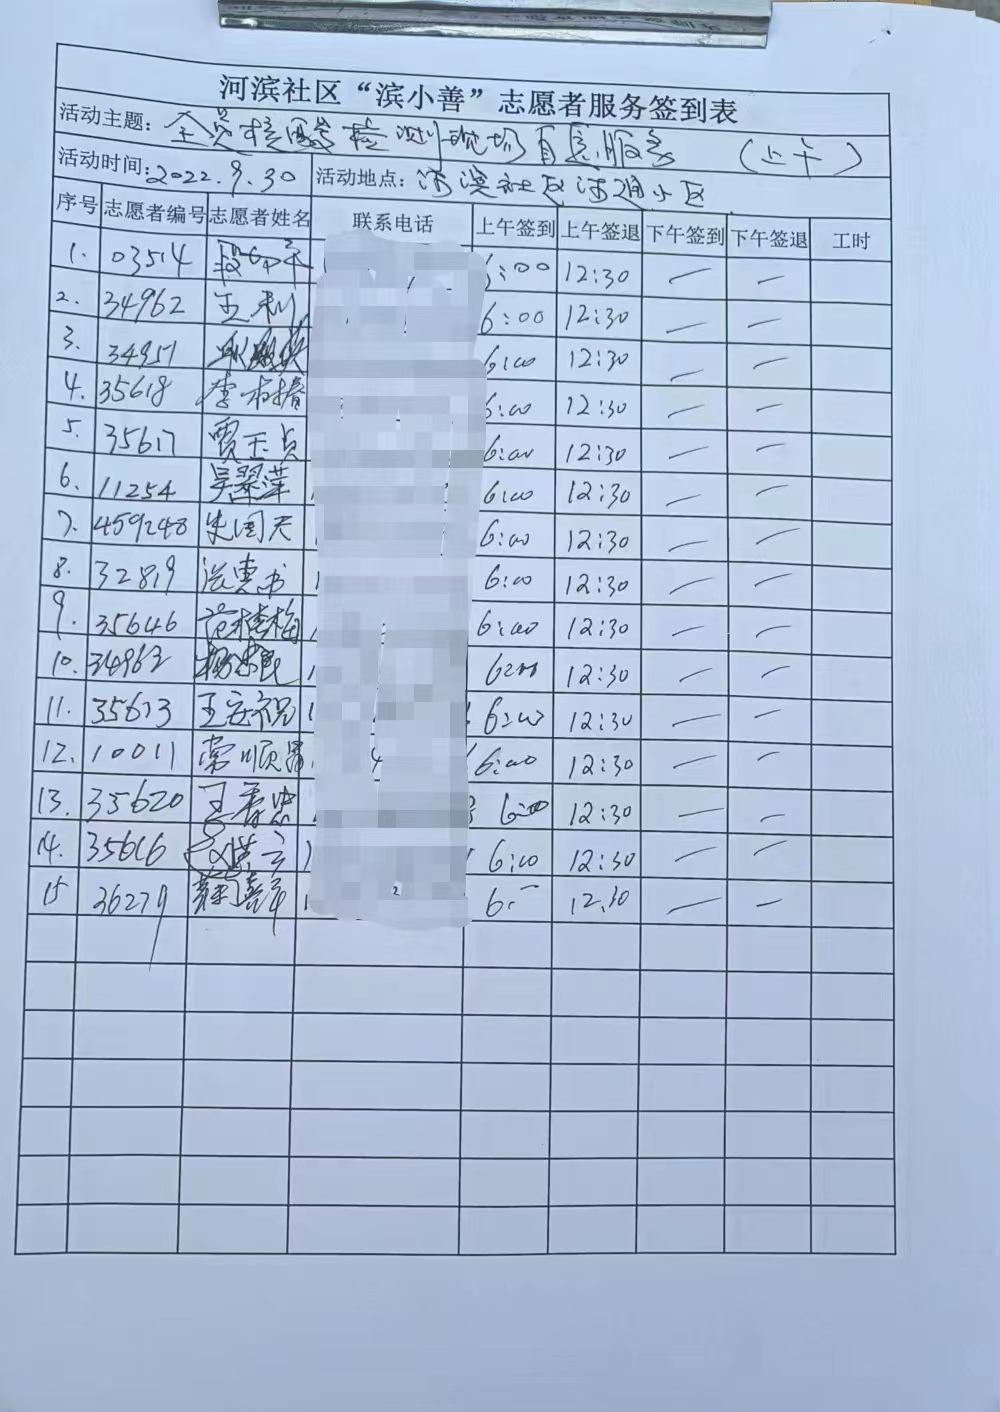 河滨社区“滨小善”志愿者服务签到表
活动主题：全员核酸检测现场自愿服务（上午）
活动时间：2022.9.30 活动地点：河滨社区河通小区
序号 志愿者编号 志愿者姓名 联系电话 上午签到 上午签退 下午签到 下午签退 工时
1. 03514 6:00 12:30 — —
2. 34962 王利 6:00 12:30 — —
3. 34957 6:00 12:30 — —
4. 35618 李 6:00 12:30 — —
5. 35617 贾玉贞 6:00 12:30 — —
6. 11254 吴翠萍 6:00 12:30 — —
7. 459248 朱国天 6:00 12:30 — —
8. 32819 6:00 12:30 — —
9. 35646 范桂梅 6:00 12:30 — —
10. 34963 杨忠民 6:00 12:30 — —
11. 35613 王宏祝 6:00 12:30 — —
12. 10011 常顺 6:00 12:30 — —
13. 35620 王春忠 6:00 12:30 — —
14. 35616 6:00 12:30 — —
15 36279 6:— 12.30 — —